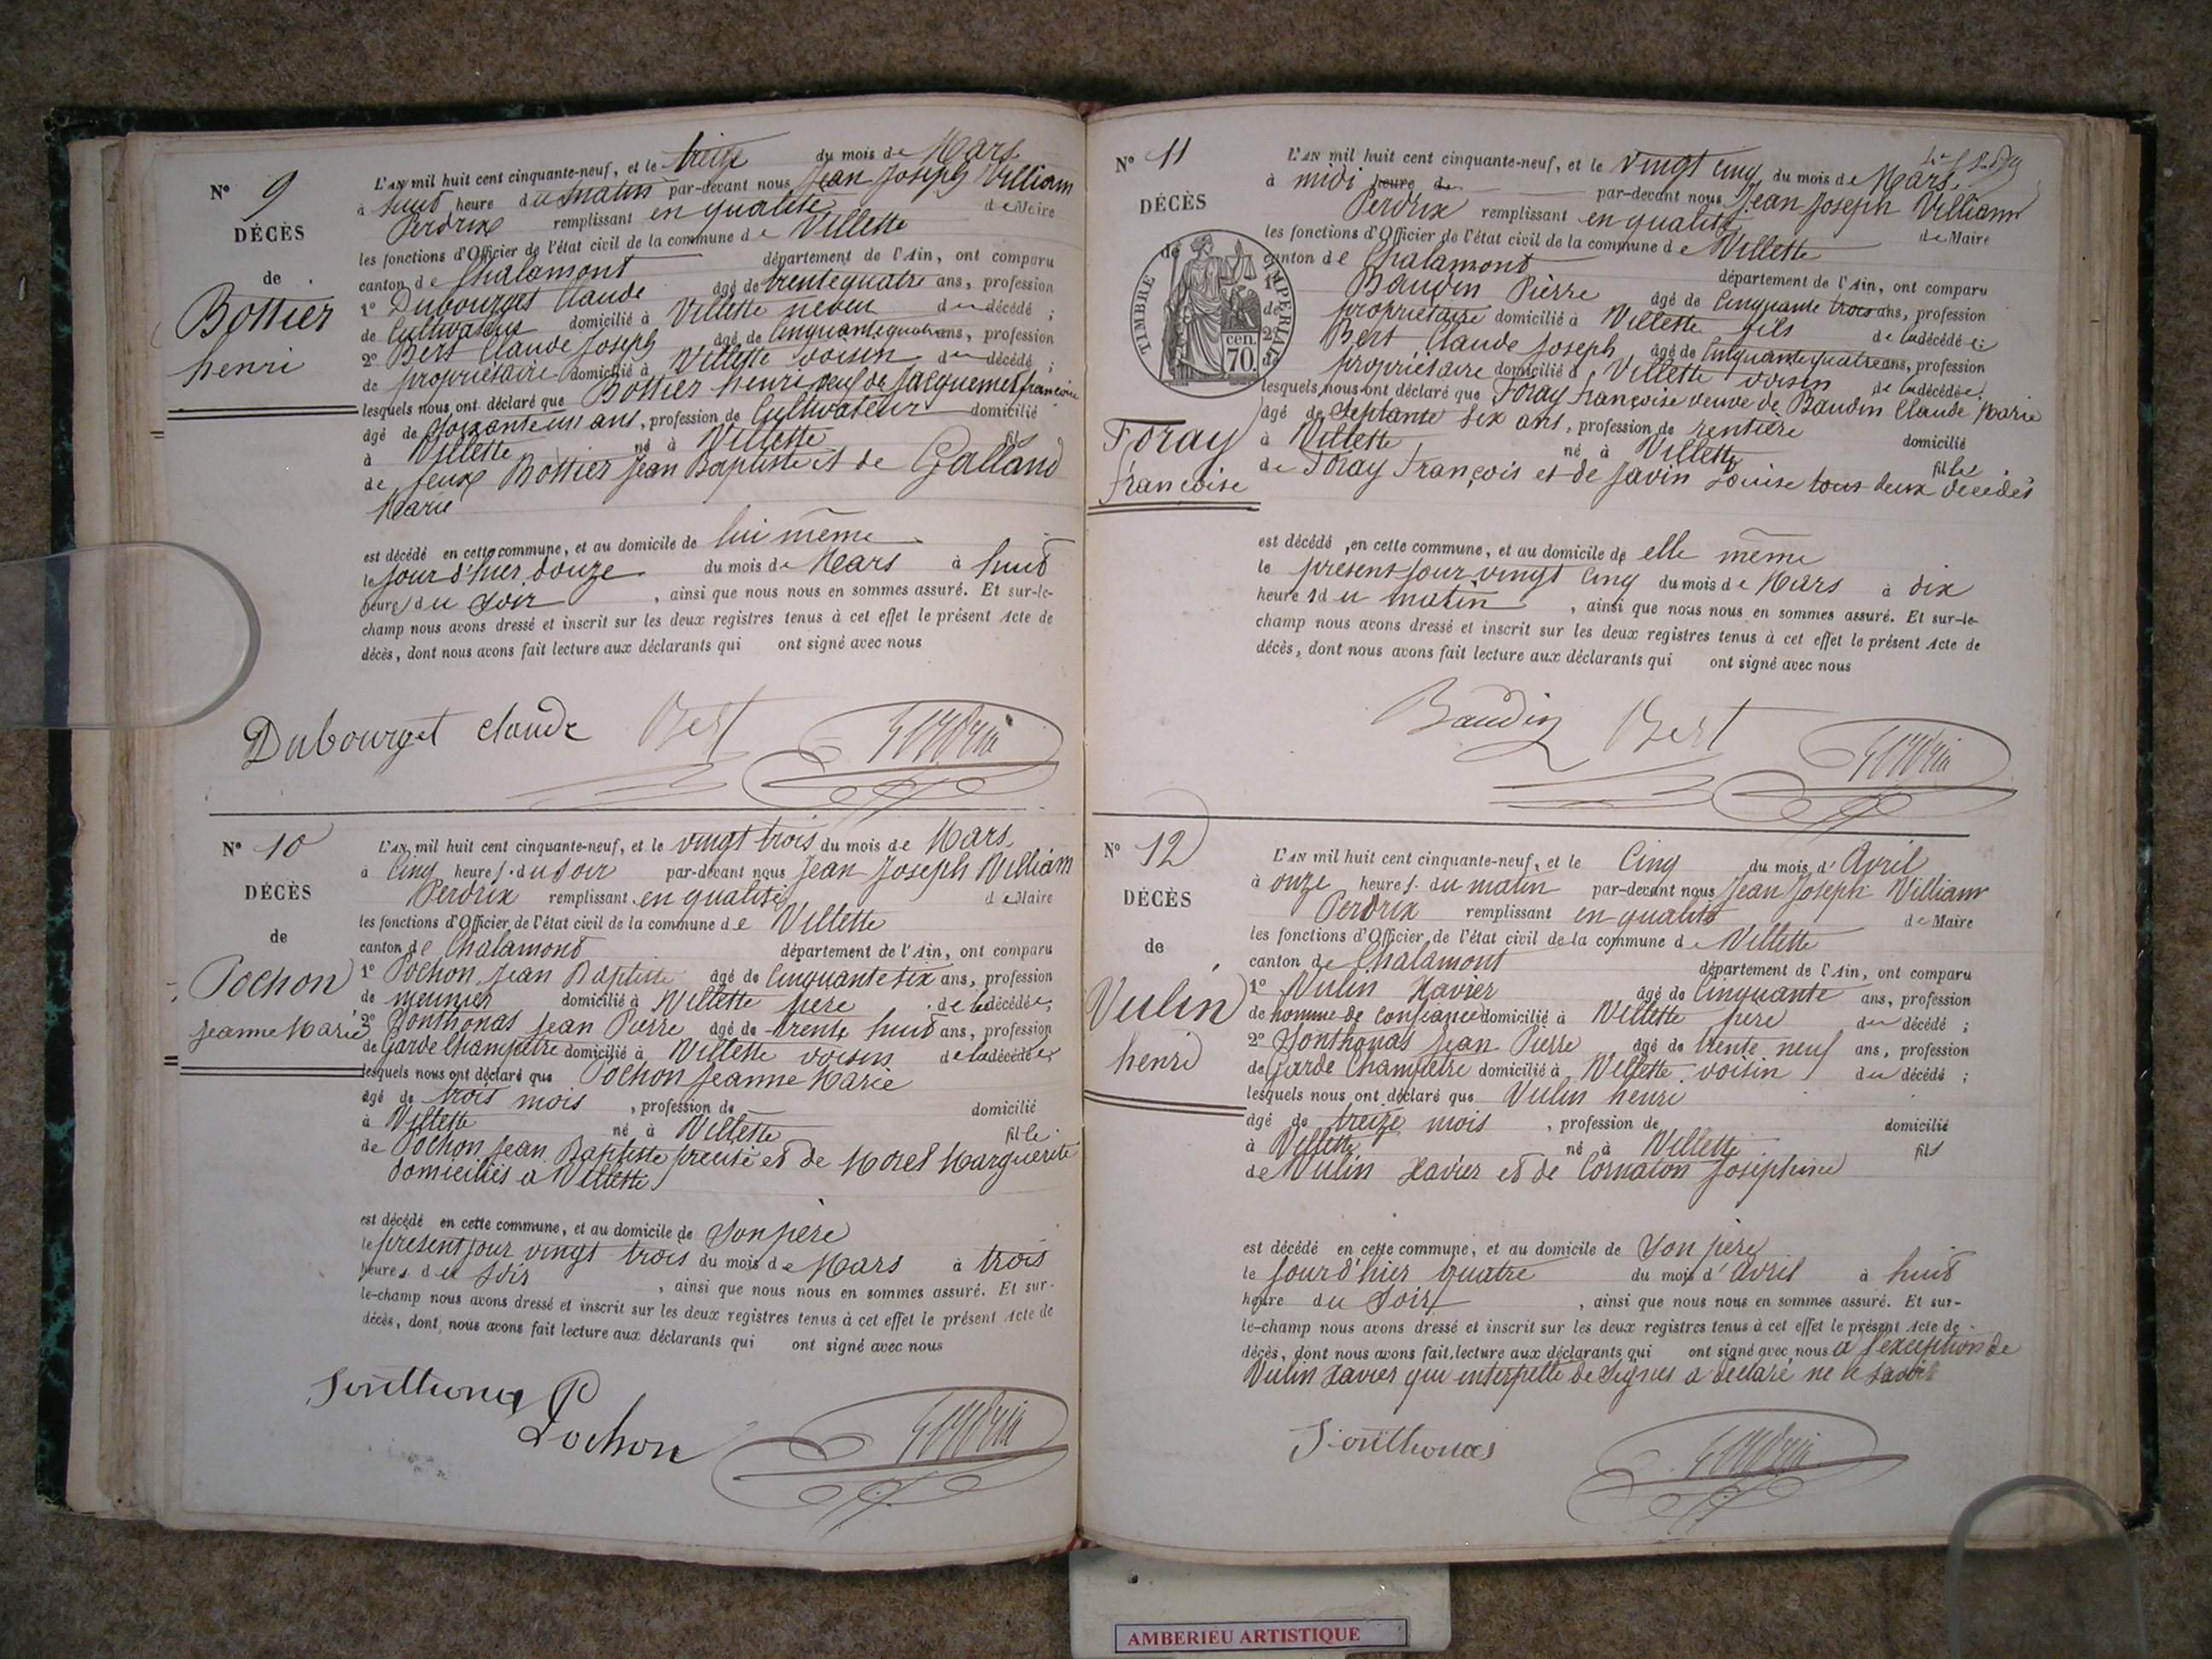 N° 9
DÉCÈS
de
Bottier
henri
L'AN mil huit cent cinquante-neuf, et le treize du mois de Mars
à huit heure du matin par-devant nous Jean Joseph Villiam
Perdrix remplissant en qualité de Maire
les fonctions d'Officier de l'état civil de la commune de Villette
canton de Chalamont département de l'Ain, ont comparu
1° Dubourget Claude âgé de trente quatre ans, profession
de Cultivateur domicilié à Villette neveu du décédé ;
2° Bert Claude Joseph âgé de Cinquante quatre ans, profession
de propriétaire domicilié à Villette voisin du décédé ;
lesquels nous ont déclaré que Bottier henri veuf de Jacquemet françoise
âgé de soixante un ans, profession de Cultivateur domicilié
à Villette né à Villette fils
de feux Bottier Jean Baptiste et de Galland
Marie
est décédé en cette commune, et au domicile de lui même
le jour d'hier douze du mois de Mars à huit
heure du soir , ainsi que nous nous en sommes assuré. Et sur-le-
champ nous avons dressé et inscrit sur les deux registres tenus à cet effet le présent Acte de
décès, dont nous avons fait lecture aux déclarants qui ont signé avec nous
Dubourget claude Bert Perdrix
N° 10
DÉCÈS
de
Pochon
Jeanne Marie
L'AN mil huit cent cinquante-neuf, et le vingt trois du mois de Mars
à Cinq heures du soir par-devant nous Jean Joseph Villiam
Perdrix remplissant en qualité de Maire
les fonctions d'Officier de l'état civil de la commune de Villette
canton de Chalamont département de l'Ain, ont comparu
1° Pochon Jean Baptiste âgé de Cinquante six ans, profession
de meunier domicilié à Villette père de la décédée ;
2° Sonthonas Jean Pierre âgé de trente huit ans, profession
de Garde Champêtre domicilié à Villette voisin de la décédée
lesquels nous ont déclaré que Pochon Jeanne Marie
âgé de trois mois , profession de domicilié
à Villette né à Villette fille
de Pochon Jean Baptiste précité et de Morel Marguerite
domiciliés a Villette
est décédé en cette commune, et au domicile de Son père
le présent jour vingt trois du mois de Mars à trois
heures du Soir , ainsi que nous nous en sommes assuré. Et sur-
le-champ nous avons dressé et inscrit sur les deux registres tenus à cet effet le présent Acte de
décès, dont nous avons fait lecture aux déclarants qui ont signé avec nous
Sonthonas P
Pochon Perdrix
N° 11
DÉCÈS
de
TIMBRE IMPÉRIAL
70. cen.
Foray
françoise
L'AN mil huit cent cinquante-neuf, et le vingt cinq du mois de Mars
à midi heure de par-devant nous Jean Joseph Villiam
Perdrix remplissant en qualité de Maire
les fonctions d'Officier de l'état civil de la commune de Villette
canton de Chalamont département de l'Ain, ont comparu
1° Baudin Pierre âgé de Cinquante trois ans, profession
de propriétaire domicilié à Villette fils de la décédée ;
2° Bert Claude Joseph âgé de Cinquante quatre ans, profession
de propriétaire domicilié à Villette voisin de la décédée
lesquels nous ont déclaré que Foray françoise veuve de Baudin Claude Marie
âgé de Septante six ans, profession de rentière domicilié
à Villette né à Villette fille
de Foray François et de Javin Louise tous deux décédés
est décédé, en cette commune, et au domicile de elle même
le présent jour vingt cinq du mois de Mars à dix
heures du matin , ainsi que nous nous en sommes assuré. Et sur-le-
champ nous avons dressé et inscrit sur les deux registres tenus à cet effet le présent Acte de
décès, dont nous avons fait lecture aux déclarants qui ont signé avec nous
Baudin Bert Perdrix
N° 12
DÉCÈS
de
Vulin
henri
L'AN mil huit cent cinquante-neuf, et le Cinq du mois d'Avril
à onze heures du matin par-devant nous Jean Joseph Villiam
Perdrix remplissant en qualité de Maire
les fonctions d'Officier de l'état civil de la commune de Villette
canton de Chalamont département de l'Ain, ont comparu
1° Vulin Xavier âgé de Cinquante ans, profession
de homme de Confiance domicilié à Villette père du décédé ;
2° Sonthonas Jean Pierre âgé de trente neuf ans, profession
de Garde Champêtre domicilié à Villette voisin du décédé ;
lesquels nous ont déclaré que Vulin henri
âgé de treize mois , profession de domicilié
à Villette né à Villette fils
de Vulin Xavier et de Cornaton Joséphine
est décédé en cette commune, et au domicile de Son père
le jour d'hier quatre du mois d'avril à huit
heure du Soir , ainsi que nous nous en sommes assuré. Et sur-
le-champ nous avons dressé et inscrit sur les deux registres tenus à cet effet le présent Acte de
décès, dont nous avons fait lecture aux déclarants qui ont signé avec nous a l'exception de
Vulin Xavier qui interpellé de Signer a déclaré ne le savoir
Sonthonas Perdrix
AMBERIEU ARTISTIQUE